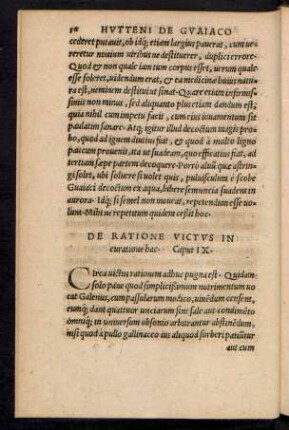 HVTTENI DE GVAIACO
cederet putauit, ob idq; etiam largius pauerat, cum ue-
reretur neuium uiribus ne destitueret, duplici errore.
Quod & non quale iam tum corpus esset, uerum quale
esse soleret, uidendum erat, & ea medicinæ huius natu-
ra est, neminem ut destitui sinat. Quare etiam infirmis-
simis non minus, sed aliquanto plus etiam dandum est,
quia nihil cum impetu facit, cum eius iuuamentum sit
paulatim sanare. Atq; igitur illud decoctum magis pro-
bo, quod ad ignem diutius fiat, & quod à multo ligno
paucum prouenit, ita ut suadeam, quo efficatius fiat, ad
tertiam sæpe partem decoquere. Porrò aluũ quæ astrin-
gi solet, ubi soluere si uolet quis, puluisculum è scobe
Guaiaci decoctum ex aqua, bibere semuncia suadent in
aurora. Idq; si semel non moueat, repetendum esse uo-
lunt. Mihi ne repetitum quidem crsit hoc.
DE RATIONE VICTVS IN
curatione hac. Caput IX.
Circa uictus rationem adhuc pugna est. Quidam
solo pane quod simplicissimum nutrimentum uo
cat Galenus, cum passularum modico, uiuẽdum censent,
eumq; dant quattuor unciarum sine sale aut condimẽto
emnuq; in uniuersum obsonio arbitrantur abstinẽdum,
nisi quod à pullo gallinaceo ius aliquod sorberi patiũtur
aut cum